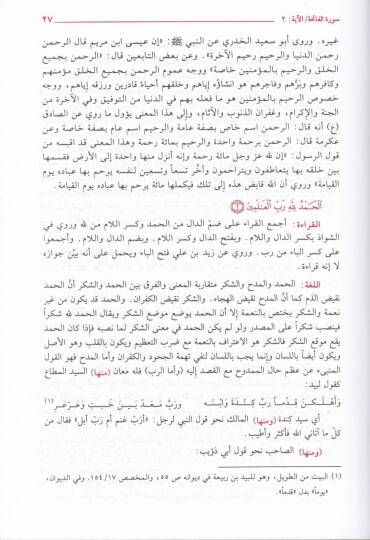 سورة الفاتحة/ الآية: ٢ ٢٧
غيره. وروي أبو سعيد الخدري عن النبي ﷺ: «إن عيسى ابن مريم قال الرحمن
رحمن الدنيا والرحيم رحيم الآخرة». وعن بعض التابعين قال: «الرحمن بجميع
الخلق والرحيم بالمؤمنين خاصة» ووجه عموم الرحمن بجميع الخلق مؤمنهم
وكافرهم وبرّهم وفاجرهم هو انشاؤه إياهم وخلقهم أحياة قادرين ورزقه إياهم، ووجه
خصوص الرحيم بالمؤمنين هو ما فعله بهم في الدنيا من التوفيق وفي الآخرة من
الجنة والإكرام، وغفران الذنوب والآثام، وإلى هذا المعنى يؤول ما روي عن الصادق
(ع) أنه قال: الرحمن اسم خاص بصفة عامة والرحيم اسم عام بصفة خاصة وعن
عكرمة قال: الرحمن برحمة واحدة والرحيم بمائة رحمة وهذا المعنى قد اقبسه من
قول الرسول: «إن لله عز وجل مائة رحمة وإنه أنزل منها واحدة إلى الأرض فقسمها
بين خلقه بها يتعاطفون ويتراحمون وأخّر تسعاً وتسعين لنفسه يرحم بها عباده يوم
القيامة» وروي أن الله قابض هذه إلى تلك فيكملها مائة يرحم بها عباده يوم القيامة.
الْحَمْدُ لِلَّهِ رَبِّ الْعَالَمِينَ ٢
القراءة: أجمع القراء على ضمّ الدال من الحمد وكسر اللام من لله وروي في
الشواذ بكسر الدال واللام. وبفتح الدال وكسر اللام. وبضم الدال واللام. وأجمعوا
على كسر الباء من رب. وروي عن زيد بن علي فتح الباء ويحمل على أنه بيّن جوازه
لا إنه قراءة.
اللغة: الحمد والمدح والشكر متقاربة المعنى والفرق بين الحمد والشكر أنّ الحمد
نقيض الذم كما أنّ المدح نقيض الهجاء. والشكر نقيض الكفران. والحمد قد يكون من غير
نعمة والشكر يختص بالنعمة إلا أن الحمد يوضع موضع الشكر ويقال الحمد لله شكراً
فينصب شكراً على المصدر ولو لم يكن الحمد في معنى الشكر لما نصبه فإذا كان الحمد
يقع موقع الشكر فالشكر هو الاعتراف بالنعمة مع ضرب التعظيم ويكون بالقلب وهو الأصل
ويكون أيضاً باللسان وإنما يجب باللسان لنفي تهمة الجحود والكفران وأما المدح فهو القول
المنبىء عن عظم حال الممدوح مع القصد إليه (وأما الرب) فله معان (منها) السيد المطاع
كقول لبيد:
وَأَهْلَكْنَ قِدْمـاً رَبَّ كِـنْـدَةَ وَابْـنَـهُ وَرَبَّ مَـعَـدٍّ بَـيْـنَ خَـبْـتٍ وَعَـرْعَـرِ(١)
أي سيد كندة (ومنها) المالك نحو قول النبي لرجل: «أرَبّ غنم أم رَب أبل» فقال من
كلّ ما آتاني الله فأكثر وأطيب.
(ومنها) الصاحب نحو قول أبي ذؤيب:
(١) البيت من الطويل، وهو للبيد بن ربيعة في ديوانه ص ٥٥، والمخصص ١٧/ ١٥٤. وفي الديوان،
«يوماً» بدل «قدماً».